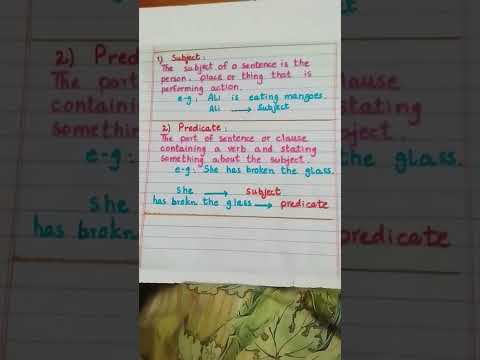 1) Subject :
The subject of a sentence is the
person, place or thing that is
performing action.
e-g: Ali is eating mangoes.
Ali → Subject
2) Predicate :
The part of sentence or clause
containing a verb and stating
something about the subject.
e-g: She has broken the glass.
She → subject
has brokn the glass → predicate